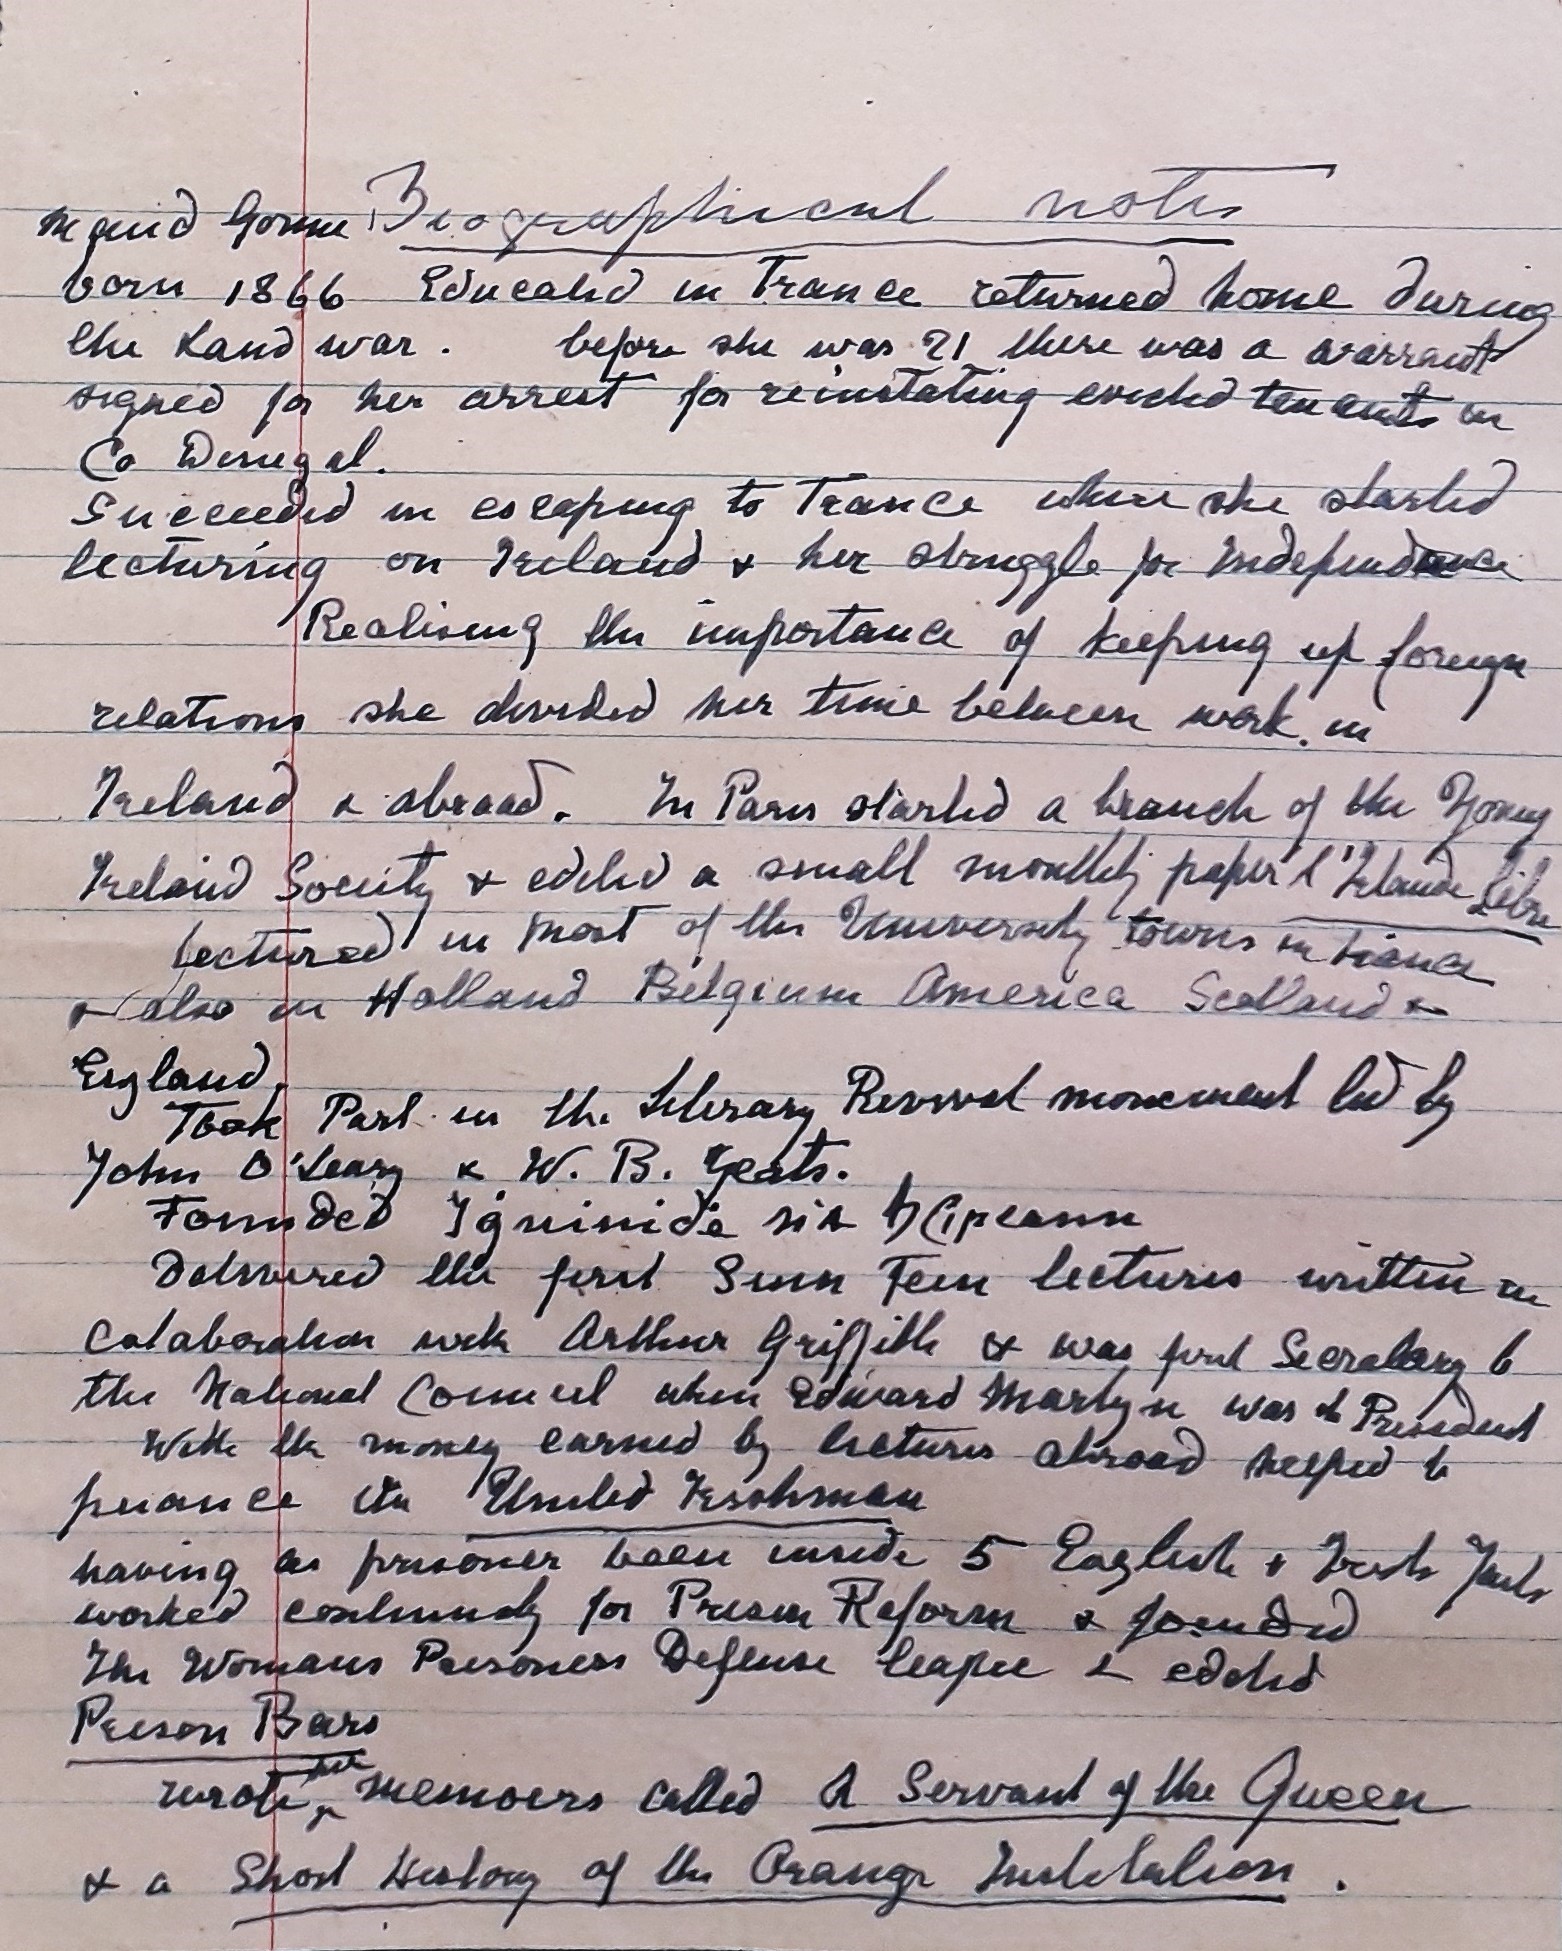 Maud Gonne Biographical notes
born 1866 Educated in France returned home during
the Land war. before she was 21 there was a warrant
signed for her arrest for reinstating evicted tenants in
Co Donegal.
Succeeded in escaping to France where she started
lecturing on Ireland & her struggle for Independence
Realising the importance of keeping up foreign
relations she divided her time between work in
Ireland & abroad. In Paris started a branch of the Young
Ireland Society & edited a small monthly paper l'Irlande Libre
lectured in most of the University towns in France
& also in Holland Belgium America Scotland &
England.
Took Part in the Literary Revival movement led by
John O'Leary & W. B. Yeats.
Founded
Delivered the first Sinn Fein lectures written in
Colaboration with Arthur Griffith & was first Secretary to
the National Council when Edward Martyn was President
With the money earned by lectures abroad helped to
finance the United Irishman
having as prisoner been inside 5 English & Irish Jails
worked continually for Prison Reform & founded
The Womans Prisoners Defense league & edited
Prison Bars
wrote her memoirs called A Servant of the Queen
& a Short History of the Orange Institution.